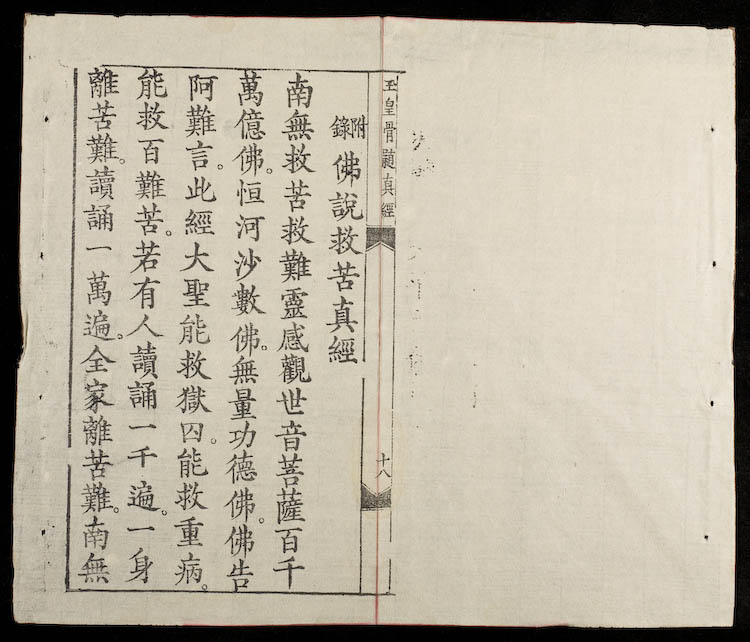 玉皇骨髓真經
十八
附錄佛說救苦真經
南無救苦救難靈感觀世音菩薩百千
萬億佛。恒河沙數佛。無量功德佛。佛告
阿難言。此經大聖能救獄囚。能救重病。
能救百難苦。若有人讀誦一千遍。一身
離苦難。讀誦一萬遍。全家離苦難。南無